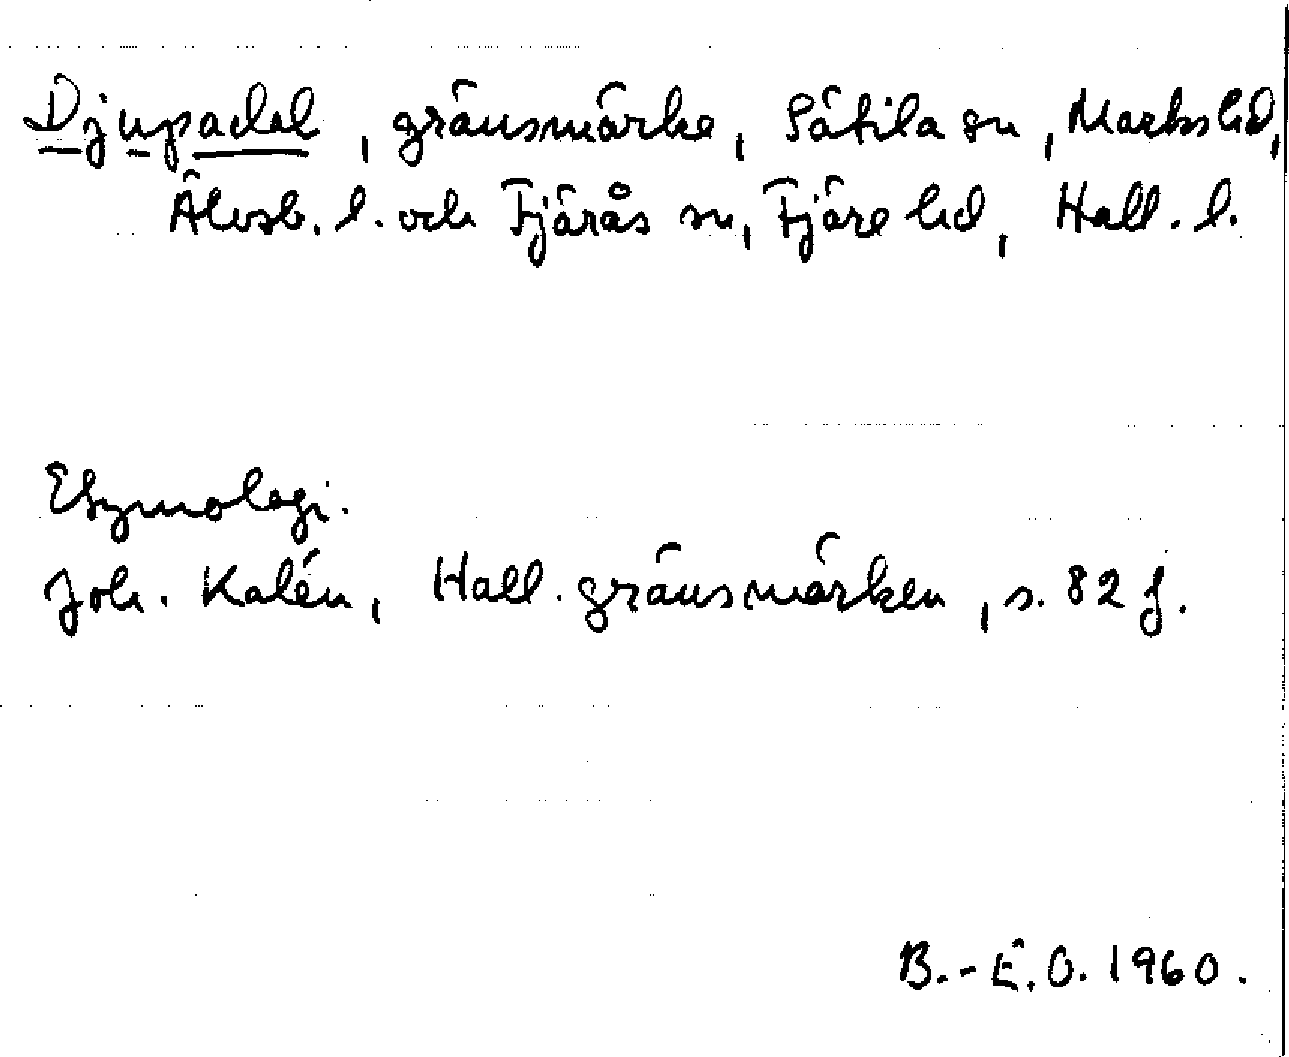 Djupadal, gränsmärke, Sätila sn, Marks hd,
Älvsb. l. och Fjärås sn, Fjäre hd, Hall. l.
Etymologi.
Joh. Kalén, Hall. gränsmärken, s. 82 f.
B.-E. O. 1960.